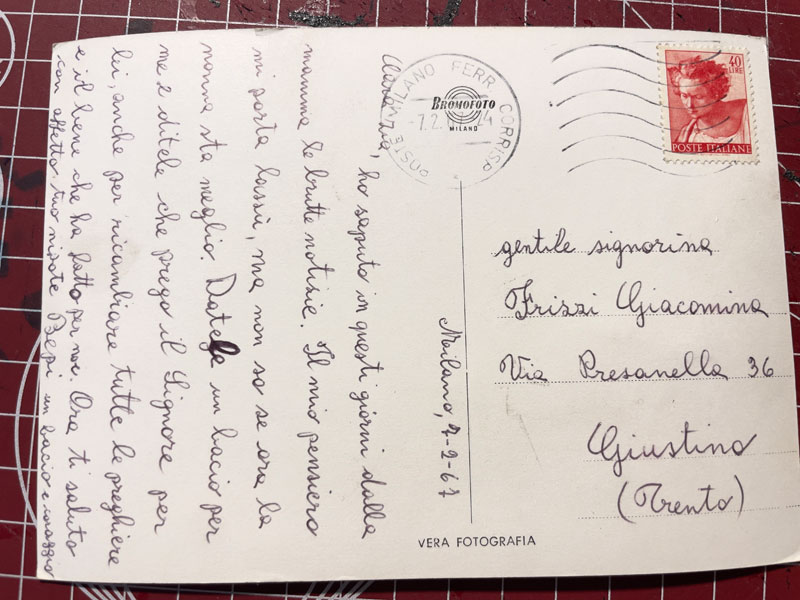 Milano, 7-2-67
Cara zia, ho saputo in questi giorni dalla
mamma le brutte notizie. Il mio pensiero
mi porta lassù, ma non so se ora la
nonna sta meglio. Datele un bacio per
me e ditele che prego il Signore per
lei, anche per ricambiare tutte le preghiere
e il bene che ha fatto per noi. Ora ti saluto
con affetto tuo nipote Bepi un bacio e coraggio
gentile signorina
Frizzi Giacomina
Via Presanella 36
Giustino
(Trento)
POSTE MILANO FERR. CORRISP.
7.2.
BROMOFOTO
MILANO
40
LIRE
POSTE ITALIANE
VERA FOTOGRAFIA